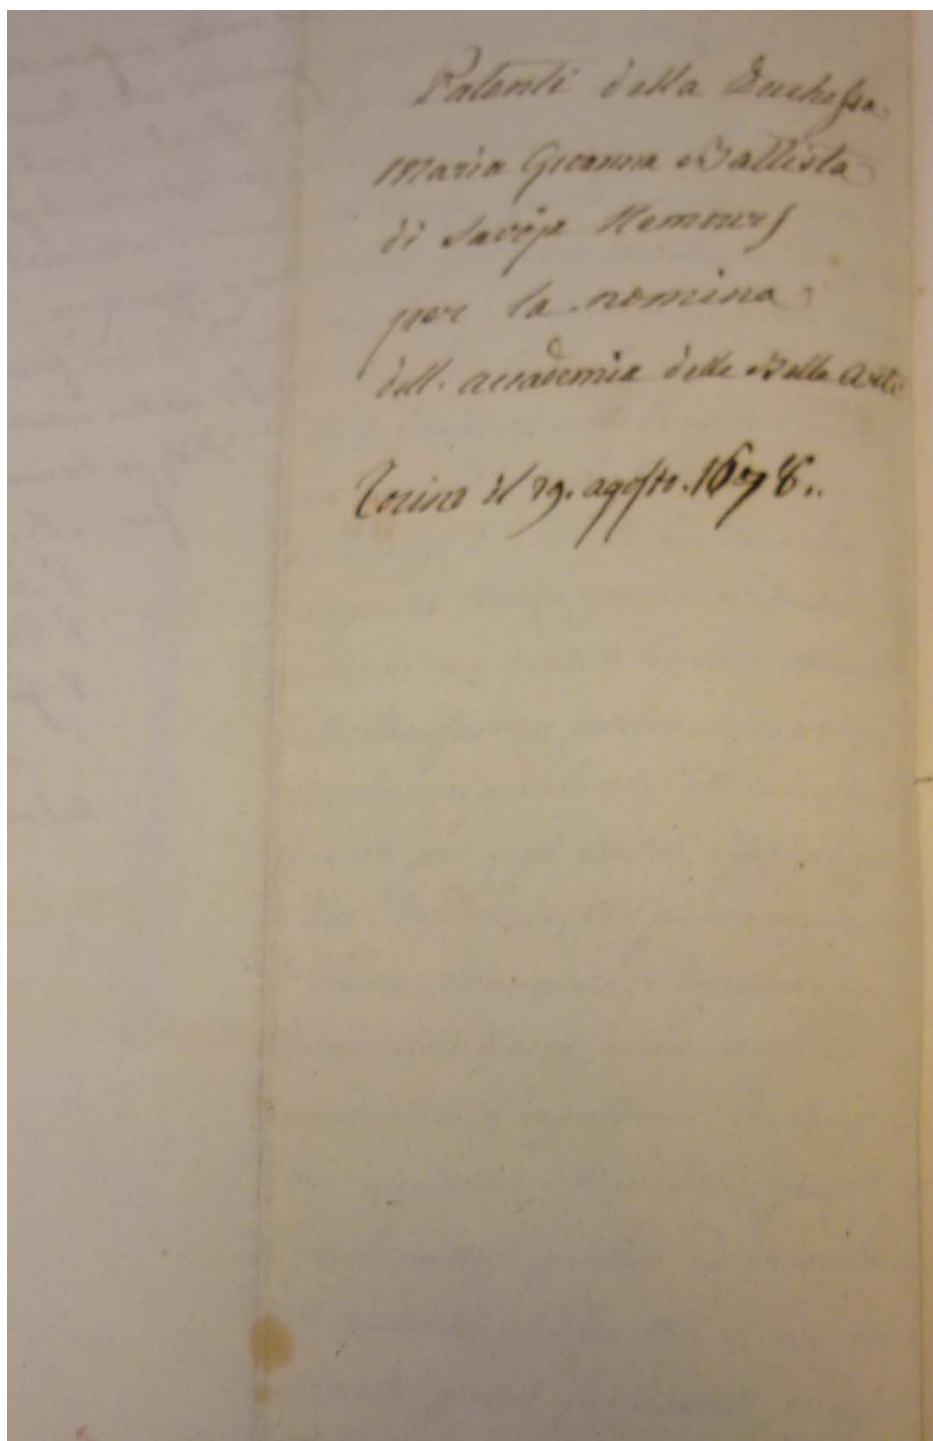 Patenti della Duchessa
Maria Giovanna Battista
di Savoja Nemours
per la nomina
dell. accademia delle Belle Arti
Torino il 29. agosto. 1678..